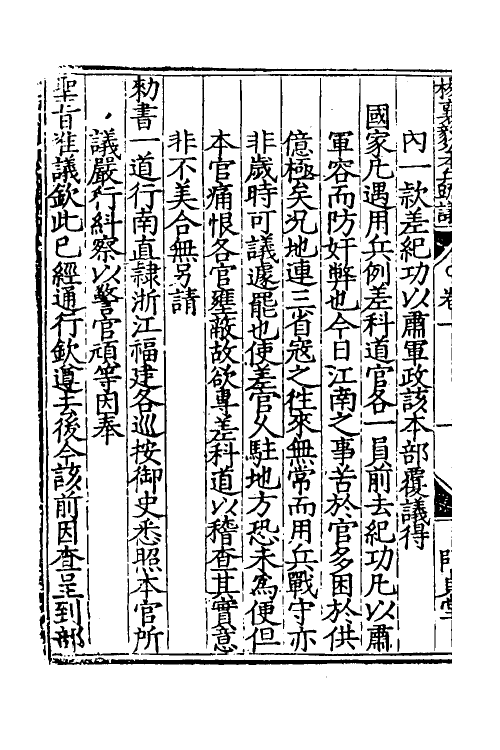 楊襄毅公本兵疏議
卷一
一
內一款差紀功以肅軍政該本部覆議得
國家凡遇用兵例差科道官各一員前去紀功凡以肅
軍容而防奸弊也今日江南之事苦於官多困於供
億極矣況地連三省寇之徃來無常而用兵戰守亦
非歲時可議遽罷也使差官乆駐地方恐未為便但
本官痛恨各官壅蔽故欲專差科道以稽查其實意
非不美合無另請
勑書一道行南直隷浙江福建各巡按御史悉照本官所
議嚴行糾察以警官頑等因奉
聖旨准議欽此已經通行欽遵去後今該前因查呈到部